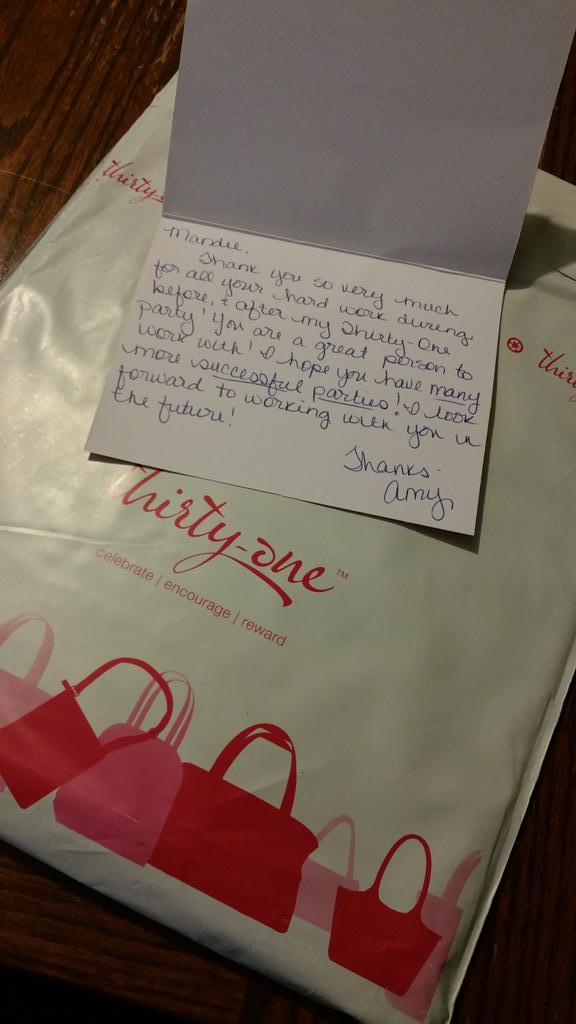 thirty-
Mandee,
Thank you so very much
for all your hard work during,
before, & after my Thirty-One
party! You are a great person to
work with! I hope you have many
more successful parties! I look
forward to working with you in
the future!
Thanks-
Amy
thir
thirty-one™
celebrate | encourage | reward